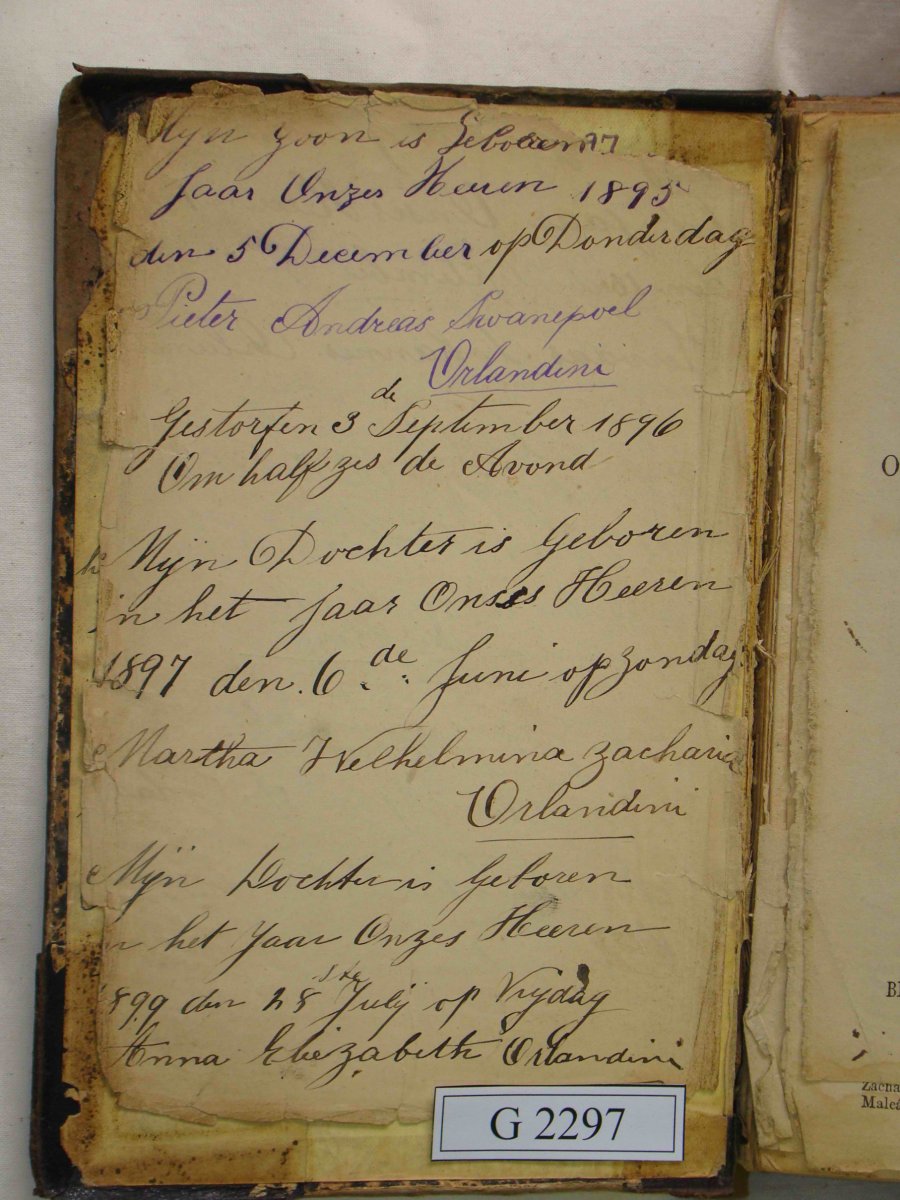 Mijn zoon is Geboren
Jaar Onzes Heeren 1895
den 5 December op Donderdag
Pieter Andreas Swanepoel
Orlandini
Gestorfen 3 de September 1896
Om half zes de Avond
Mijn Dochter is Geboren
in het Jaar Onses Heeren
1897 den 6 de Juni op zondag
Martha Welhelmina Zacharia
Orlandini
Mijn Dochter is Geboren
het Jaar Onzes Heeren
1899 den 28 ste Julij op Vrijdag
Anna Eliezabeth Orlandini
G 2297
O
BI
Zacha
Maleá